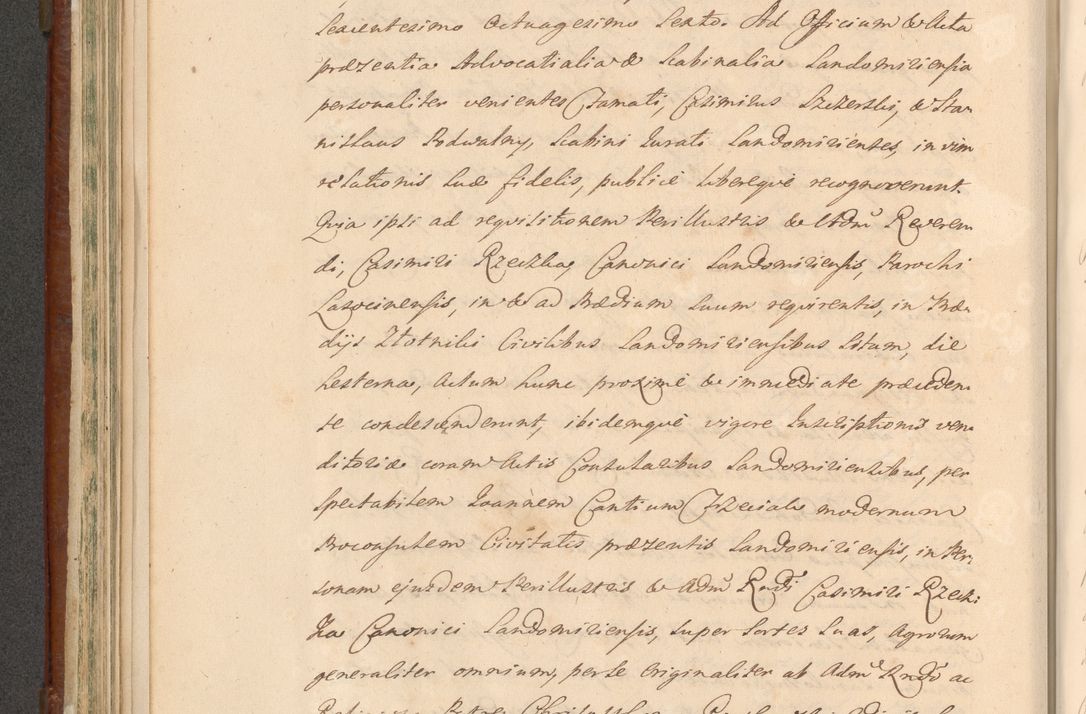 Sexcentesimo Octuagesimo Sexto. Ad Officium & Acta
præzentia Advocatialia & Scabinalia Sandomiriensia
personaliter venientes Famati, Casimirus Szczerski, & Sta-
nislaus Podwalny, Scabini Iurati Sandomirientes, in vim
relationis suæ fidelis, publicè libereqvè recognoverunt.
Qvia ipsi ad reqvisitionem Perillustris & Adm Reveren
di, Casimiri Rzeczka, Canonici Sandomiriensis, Parochi
Lasocinensis, in & ad Prædium suum reqvirentis, in Præ-
dijs Złotniki Civilibus Sandomiriensibus situm, die
hesterna, Actum hunc proximè & immediate præceden-
te condescenderunt, ibidemqvè vigore Inscriptionis ven-
ditoriæ coram Actis Consularibus Sandomiriensibus, per
Spectabilem Ioannem Cantium modernum
Proconsulem Civitatis præzentis Sandomiriensis, in Per-
sonam ejusdem Perillustris & Adm Rndi Casimiri Rzecz-
ka Canonici Sandomiriensis, super Sortes suas, Agrorum
generaliter omnium, per se originaliter ab Adm Rndo ac